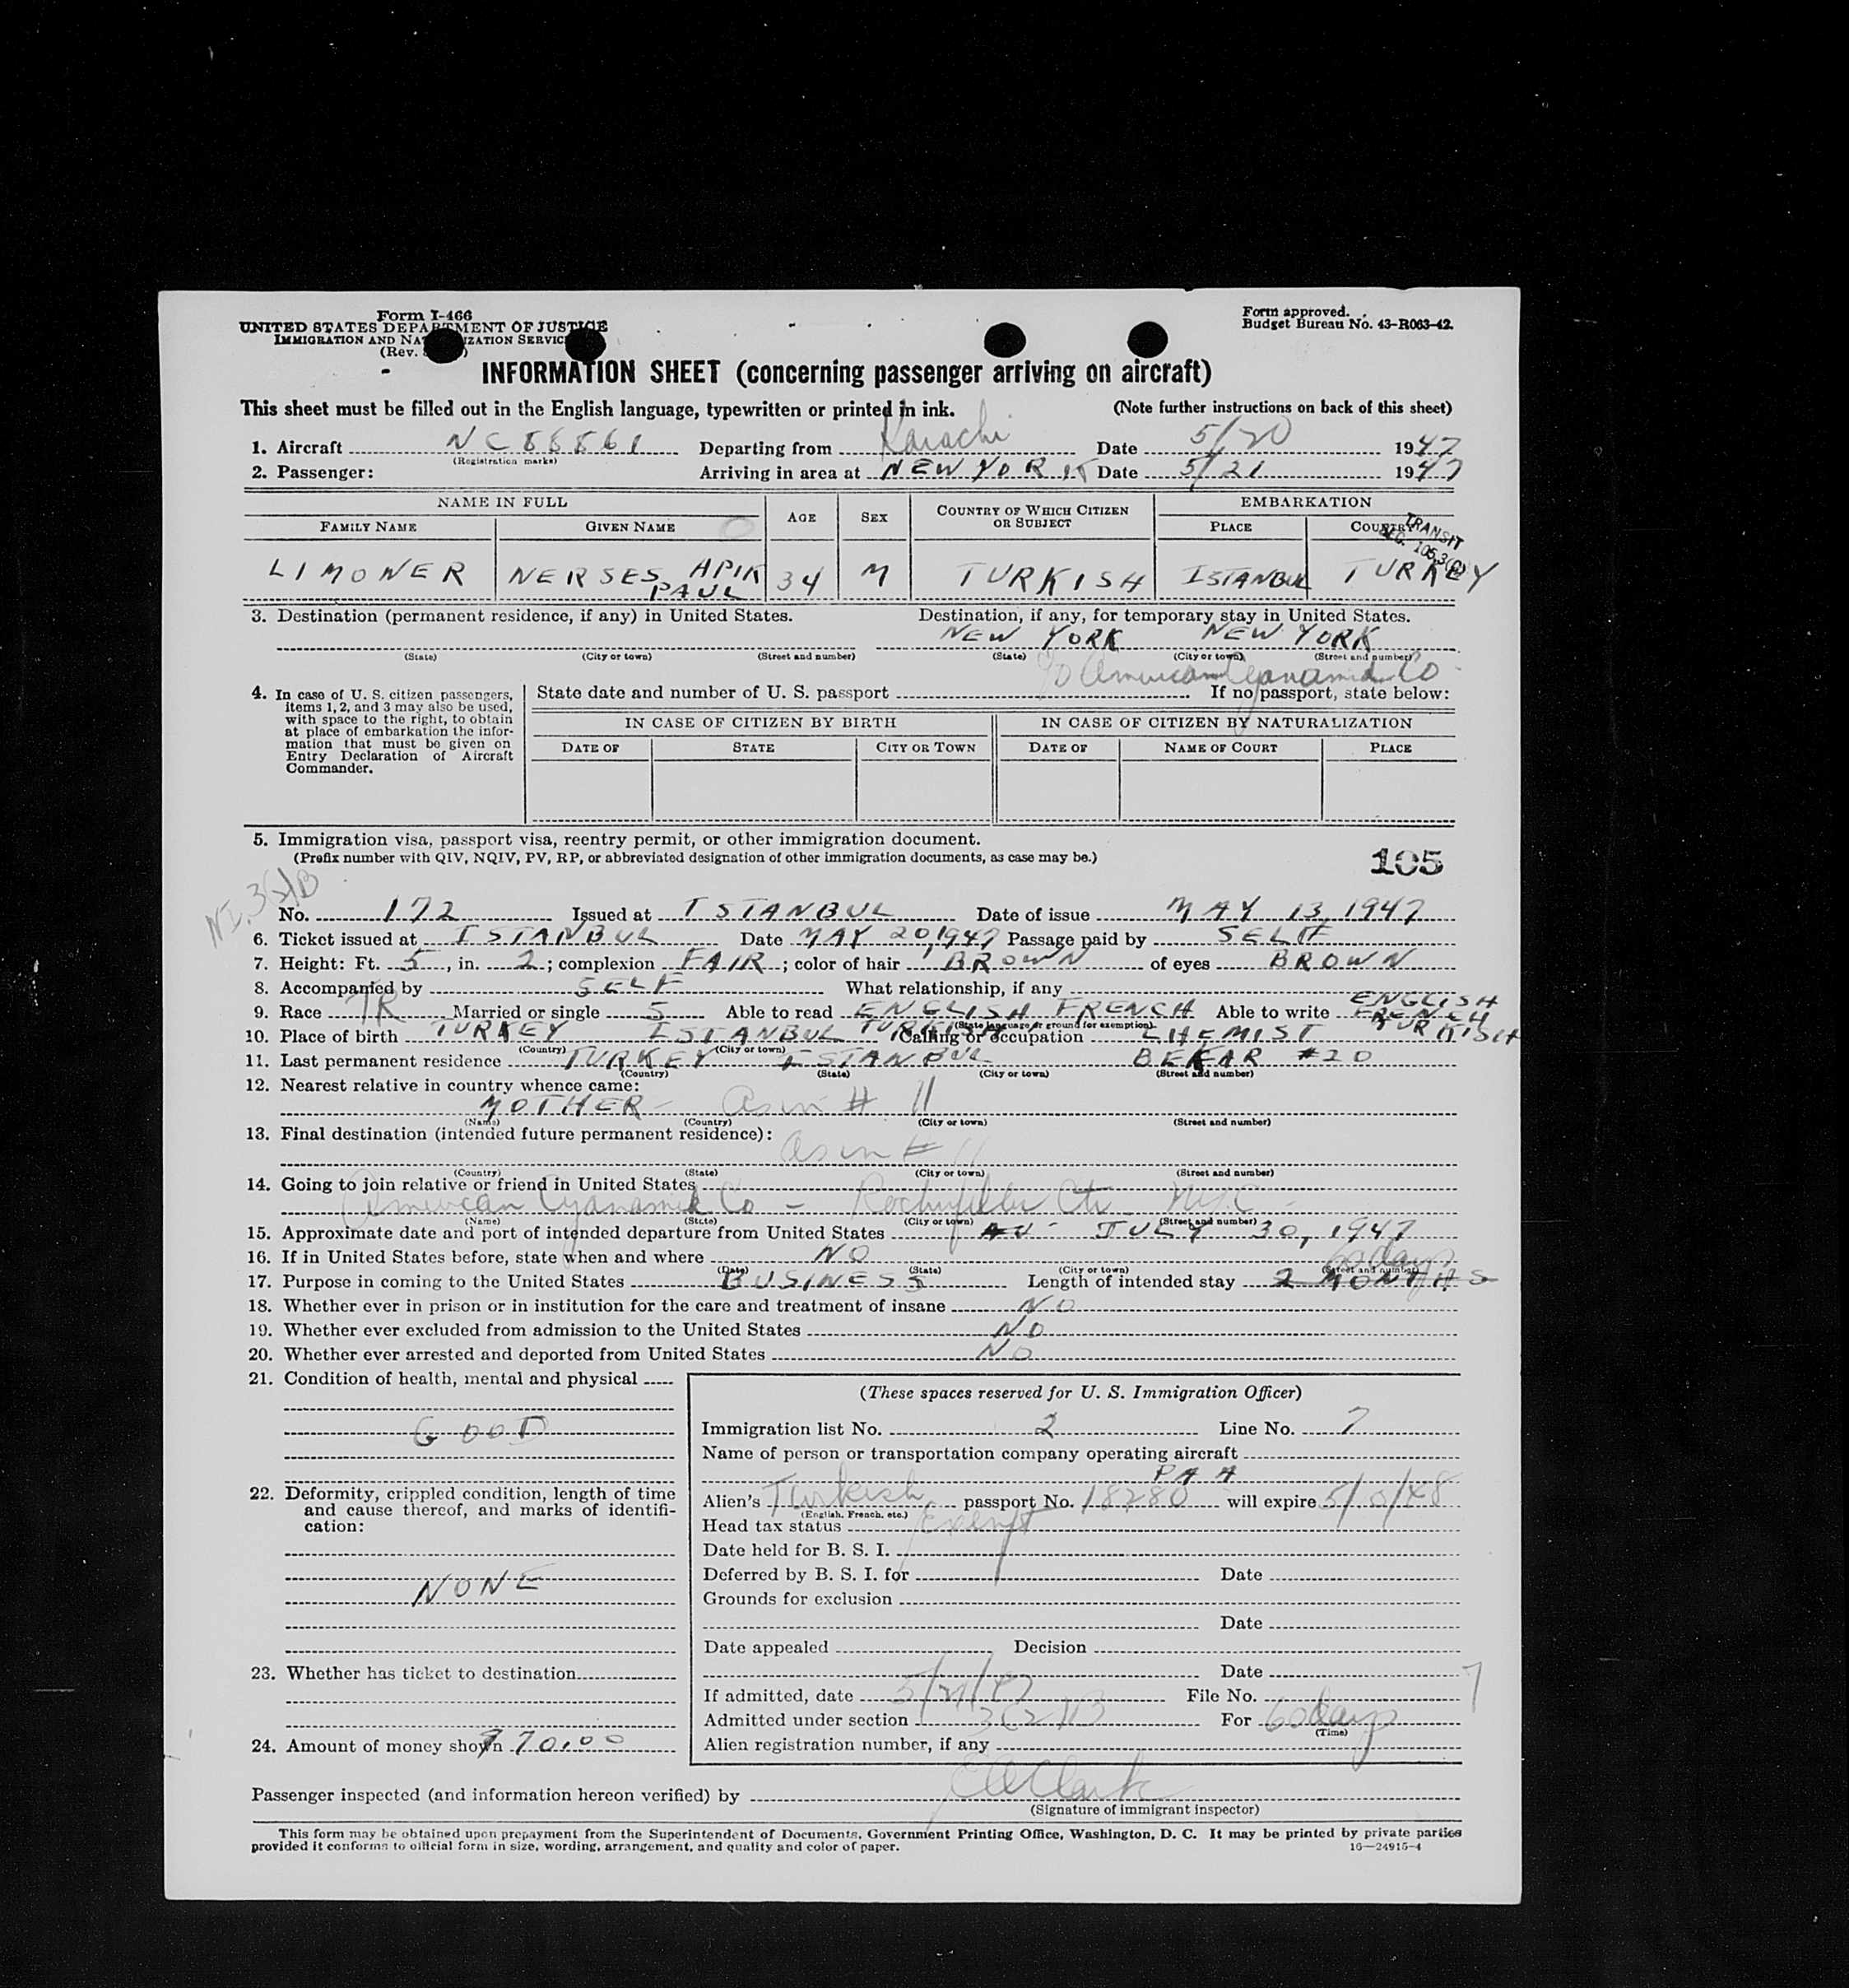 Form I-466
UNITED STATES DEPARTMENT OF JUSTICE
IMMIGRATION AND NATURALIZATION SERVICE
(Rev.
Form approved.
Budget Bureau No. 43-R063-42.
INFORMATION SHEET (concerning passenger arriving on aircraft)
This sheet must be filled out in the English language, typewritten or printed in ink. (Note further instructions on back of this sheet)
1. Aircraft NC88861 Departing from Karachi Date 5/20 1947
(Registration marks)
2. Passenger: Arriving in area at NEW YORK Date 5/21 1947
NAME IN FULL AGE SEX COUNTRY OF WHICH CITIZEN OR SUBJECT EMBARKATION
FAMILY NAME GIVEN NAME PLACE COUNTRY
TRANSIT
LIMONER NERSES APIK PAUL 34 M TURKISH ISTANBUL TURKEY
3. Destination (permanent residence, if any) in United States. Destination, if any, for temporary stay in United States.
NEW YORK NEW YORK
(State) (City or town) (Street and number) (State) (City or town) (Street and number)
c/o American Cyanamid Co
4. In case of U. S. citizen passengers, items 1, 2, and 3 may also be used, with space to the right, to obtain at place of embarkation the information that must be given on Entry Declaration of Aircraft Commander.
State date and number of U. S. passport If no passport, state below:
IN CASE OF CITIZEN BY BIRTH IN CASE OF CITIZEN BY NATURALIZATION
DATE OF STATE CITY OR TOWN DATE OF NAME OF COURT PLACE
5. Immigration visa, passport visa, reentry permit, or other immigration document.
(Prefix number with QIV, NQIV, PV, RP, or abbreviated designation of other immigration documents, as case may be.)
105
No. 172 Issued at ISTANBUL Date of issue MAY 13, 1947
6. Ticket issued at ISTANBUL Date MAY 20, 1947 Passage paid by SELF
7. Height: Ft. 5, in. 2; complexion FAIR; color of hair BROWN of eyes BROWN
8. Accompanied by SELF What relationship, if any
9. Race TR Married or single S Able to read ENGLISH FRENCH TURKISH Able to write ENGLISH FRENCH TURKISH
(State language or ground for exemption)
10. Place of birth TURKEY ISTANBUL Calling or occupation CHEMIST
(Country) (City or town)
11. Last permanent residence TURKEY ISTANBUL BEKAR #20
(Country) (State) (City or town) (Street and number)
12. Nearest relative in country whence came:
MOTHER - As in # 11
(Name) (Country) (City or town) (Street and number)
13. Final destination (intended future permanent residence):
As in # 11
(Country) (State) (City or town) (Street and number)
14. Going to join relative or friend in United States
American Cyanamid Co - Rockefeller Ctr NYC -
(Name) (State) (City or town) (Street and number)
15. Approximate date and port of intended departure from United States JULY 30, 1947
16. If in United States before, state when and where NO
(Date) (State) (City or town) (Street and number)
60 days
17. Purpose in coming to the United States BUSINESS Length of intended stay 2 MONTHS
18. Whether ever in prison or in institution for the care and treatment of insane NO
19. Whether ever excluded from admission to the United States NO
20. Whether ever arrested and deported from United States NO
21. Condition of health, mental and physical
GOOD
22. Deformity, crippled condition, length of time and cause thereof, and marks of identification:
NONE
23. Whether has ticket to destination
24. Amount of money shown $70.00
(These spaces reserved for U. S. Immigration Officer)
Immigration list No. 2 Line No. 7
Name of person or transportation company operating aircraft
PAA
Alien's Turkish passport No. 18280 will expire
(English, French, etc.)
Head tax status Exempt
Date held for B. S. I.
Deferred by B. S. I. for Date
Grounds for exclusion
Date
Date appealed Decision
Date
If admitted, date 5/21/47 File No.
Admitted under section 3(2)B For 60 days
(Time)
Alien registration number, if any
Passenger inspected (and information hereon verified) by
(Signature of immigrant inspector)
This form may be obtained upon prepayment from the Superintendent of Documents, Government Printing Office, Washington, D. C. It may be printed by private parties
provided it conforms to official form in size, wording, arrangement, and quality and color of paper. 16—24915-4